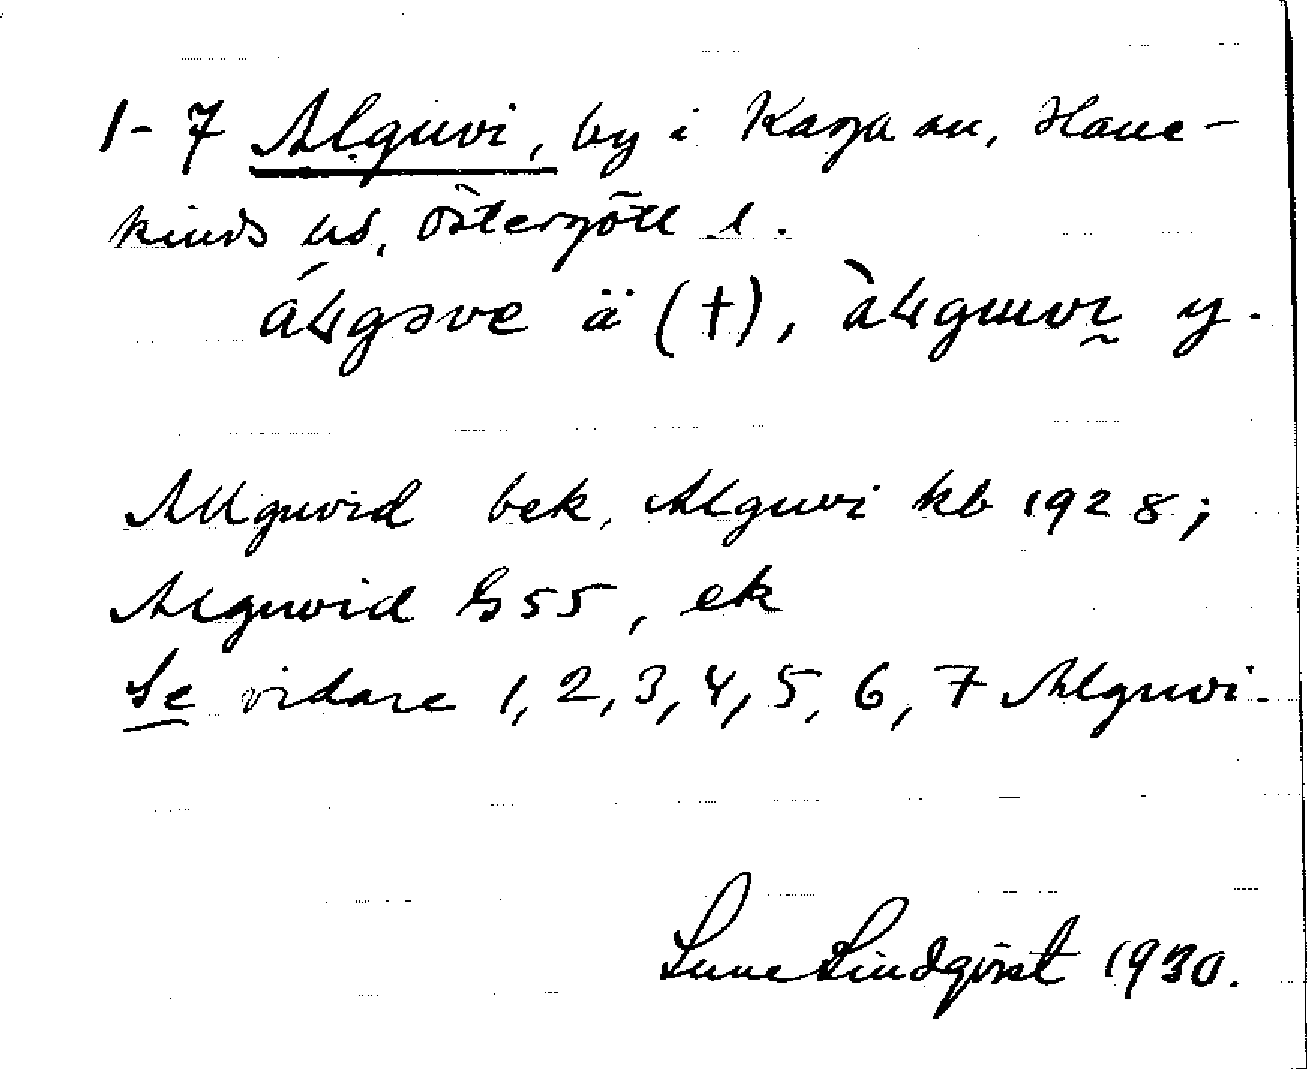 1-7 Alguvi, by i Karga sn, Hane-
kinds hd, Östergötl l.
álgəve ä (†), àlguvi y.
Allguvid bek, Alguvi kb 1928;
Alguvid G 55, ek
Se vidare 1, 2, 3, 4, 5, 6, 7 Alguvi.
Sune Lindqvist 1930.